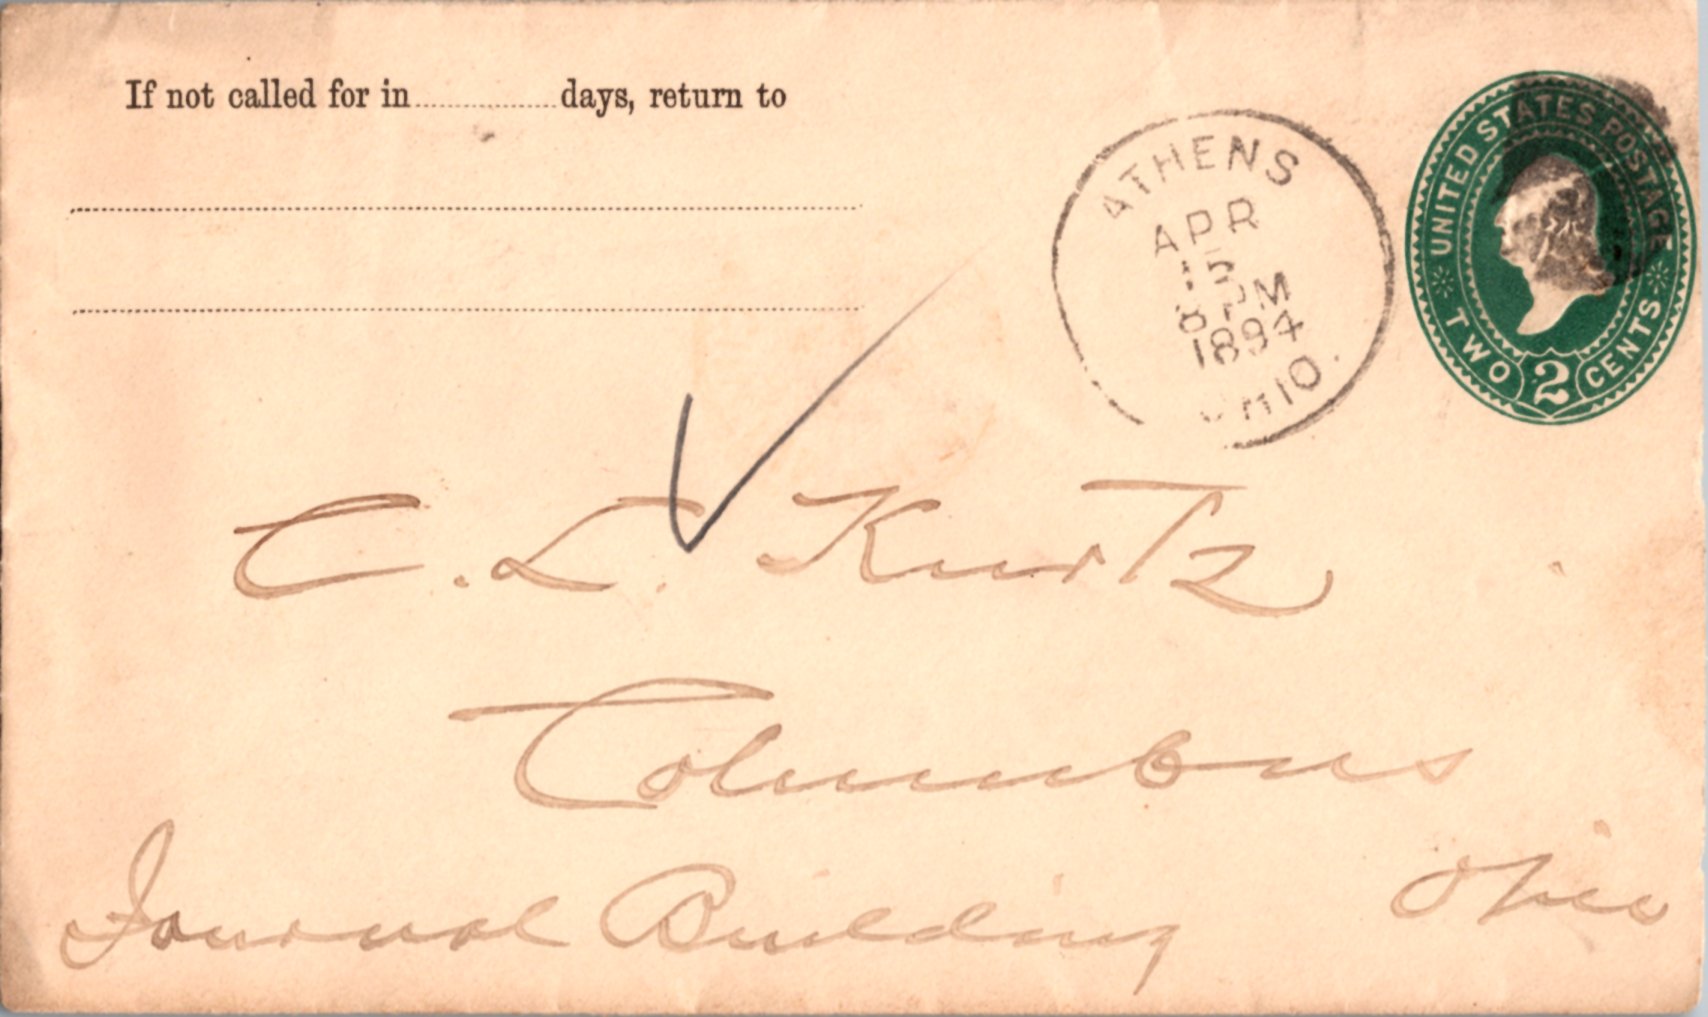 If not called for in.................days, return to
UNITED STATES POSTAGE
TWO 2 CENTS
ATHENS
APR
PM
1894
OHIO.
C. L. Kurtz
Columbus
Ohio
Journal Building